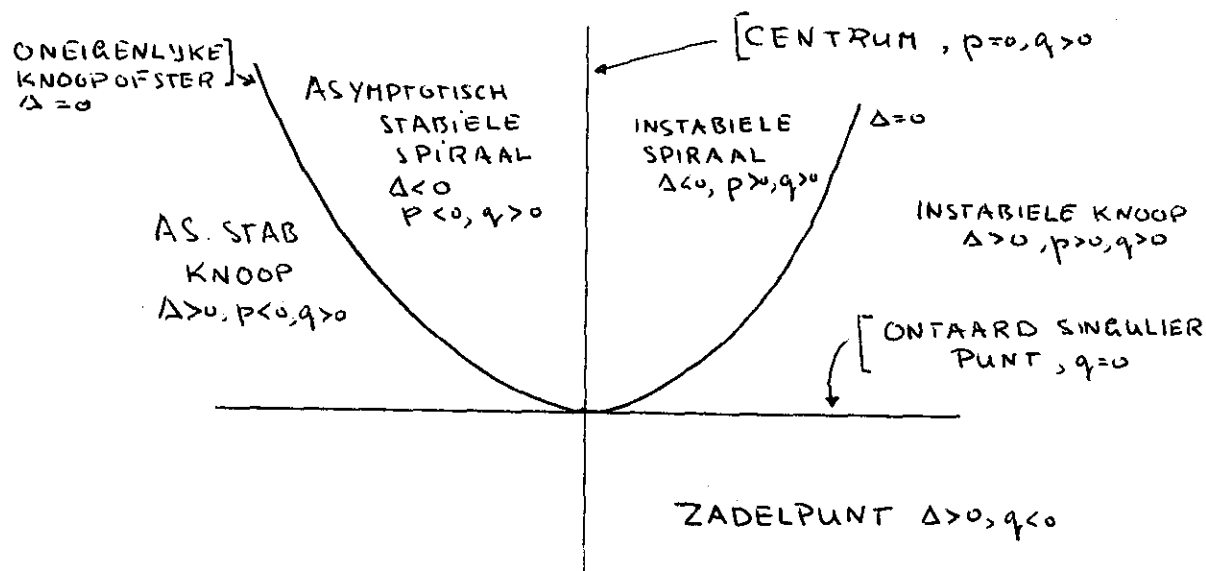 ONEIGENLIJKE
KNOOP OF STER
Δ=0
ASYMPTOTISCH
STABIELE
SPIRAAL
Δ<0
p<0, q>0
AS. STAB
KNOOP
Δ>0, p<0, q>0
CENTRUM, p=0, q>0
INSTABIELE
SPIRAAL
Δ<0, p>0, q>0
Δ=0
INSTABIELE KNOOP
Δ>0, p>0, q>0
ONTAARD SINGULIER
PUNT, q=0
ZADELPUNT Δ>0, q<0